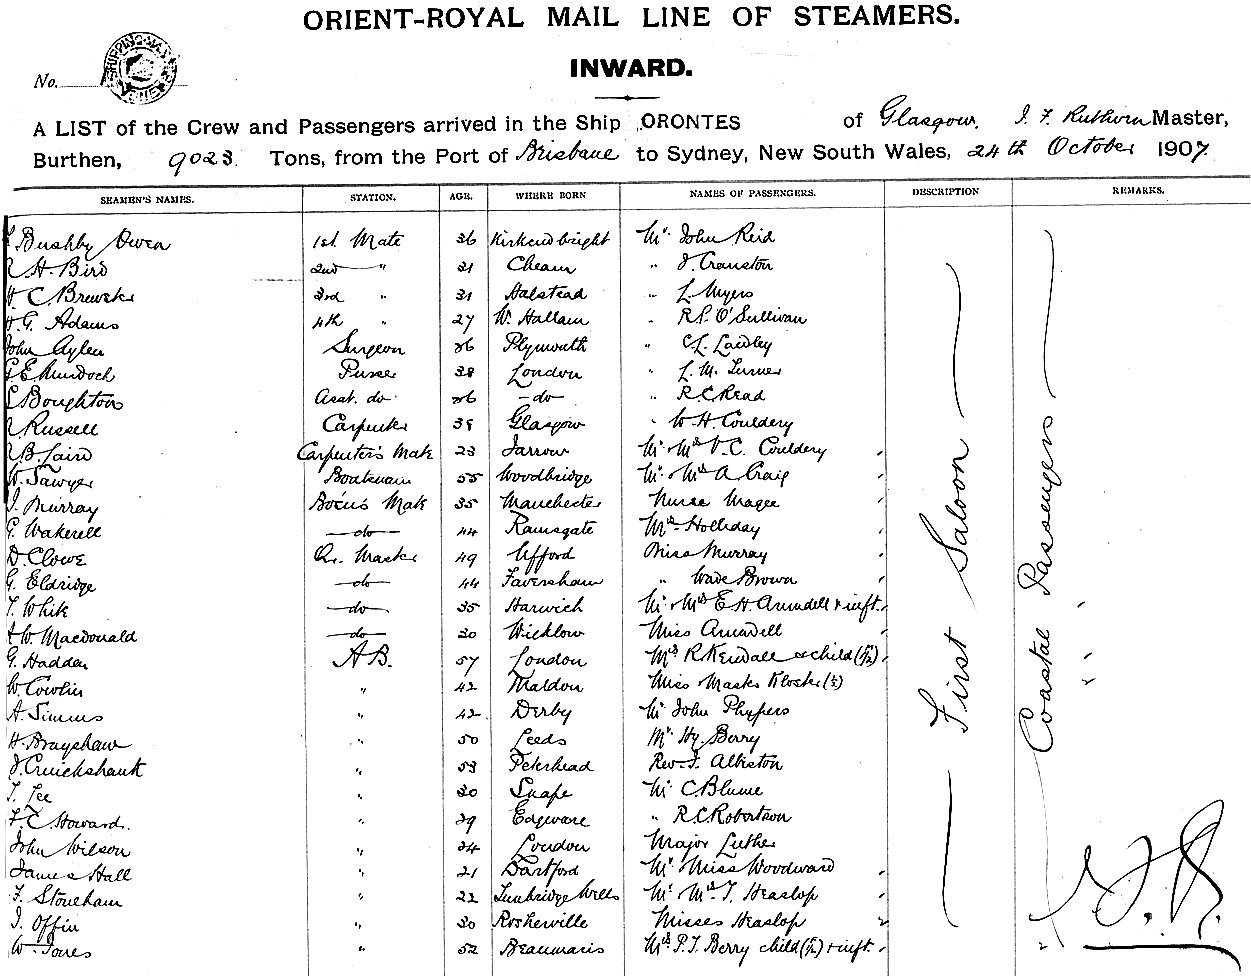 ORIENT-ROYAL MAIL LINE OF STEAMERS.
INWARD.
No.
A LIST of the Crew and Passengers arrived in the Ship ORONTES of Glasgow. Master,
Burthen, 9023 Tons, from the Port of Brisbane to Sydney, New South Wales, 24th October 1907.
SEAMEN'S NAMES. STATION. AGE. WHERE BORN NAMES OF PASSENGERS. DESCRIPTION REMARKS.
Bushby Owen 1st Mate 36 Kirkcudbright Mr John Reid
H. Bird 2nd " 31 Cheam " J. Cranston
H C Brewster 3rd " 31 Halstead " L Myers
H.G. Adams 4th " 27 W. Hallam " R.P. O'Sullivan
John Aylen Surgeon 36 Plymouth " C.L. Laidley
G E Murdoch Purser 38 London " L. M. Turner
Boughton Asst. do. 26 -do- " R C Read
Russell Carpenter London " W. H. Couldery
B. Laird Carpenter's Mate 23 Jarrow Mr Mrs V. C. Couldery
W. Sawyer Boatswain 55 Woodbridge Mr. Mrs A Craig
J. Murray Bo'sun's Mate 35 Manchester Nurse Magee
G. Wakerell -do- 44 Ramsgate Mrs Holliday
D. Clowe Qr. Master 49 Ufford Miss Murray
G. Eldridge -do- 44 Faversham " Wade Brown
T. White -do- 35 Harwich Mr. Mrs E. H. Arundell + inft.
W. Macdonald -do- 30 Wicklow Miss Arundell
G. Hadden A B. 57 London Mrs R Kendall & child
W. Cowlin " 42 Maldon Miss Master Kloster (½)
A. Simms " 42 Derby Mr John Phypers
H. Brayshaw " 50 Leeds Mr Hy. Berry
J. Cruickshank " 53 Peterhead Rev J. Albiston
T. Lee " 30 Snape Mr C Blume
F. C. Howard. " 39 Edgware " R. C. Robertson
John Wilson " 24 London Major Luther
James Hall " 21 Dartford Mr Miss Woodward
F. Stoneham " 22 Tunbridge Wells Mr Mrs T. Heaslop
J. Offin " 30 Rosherville Misses Heaslop 2
W. Jones " 52 Beaumaris Mrs P. T. Berry child + inft.
First Saloon
Coastal Passengers